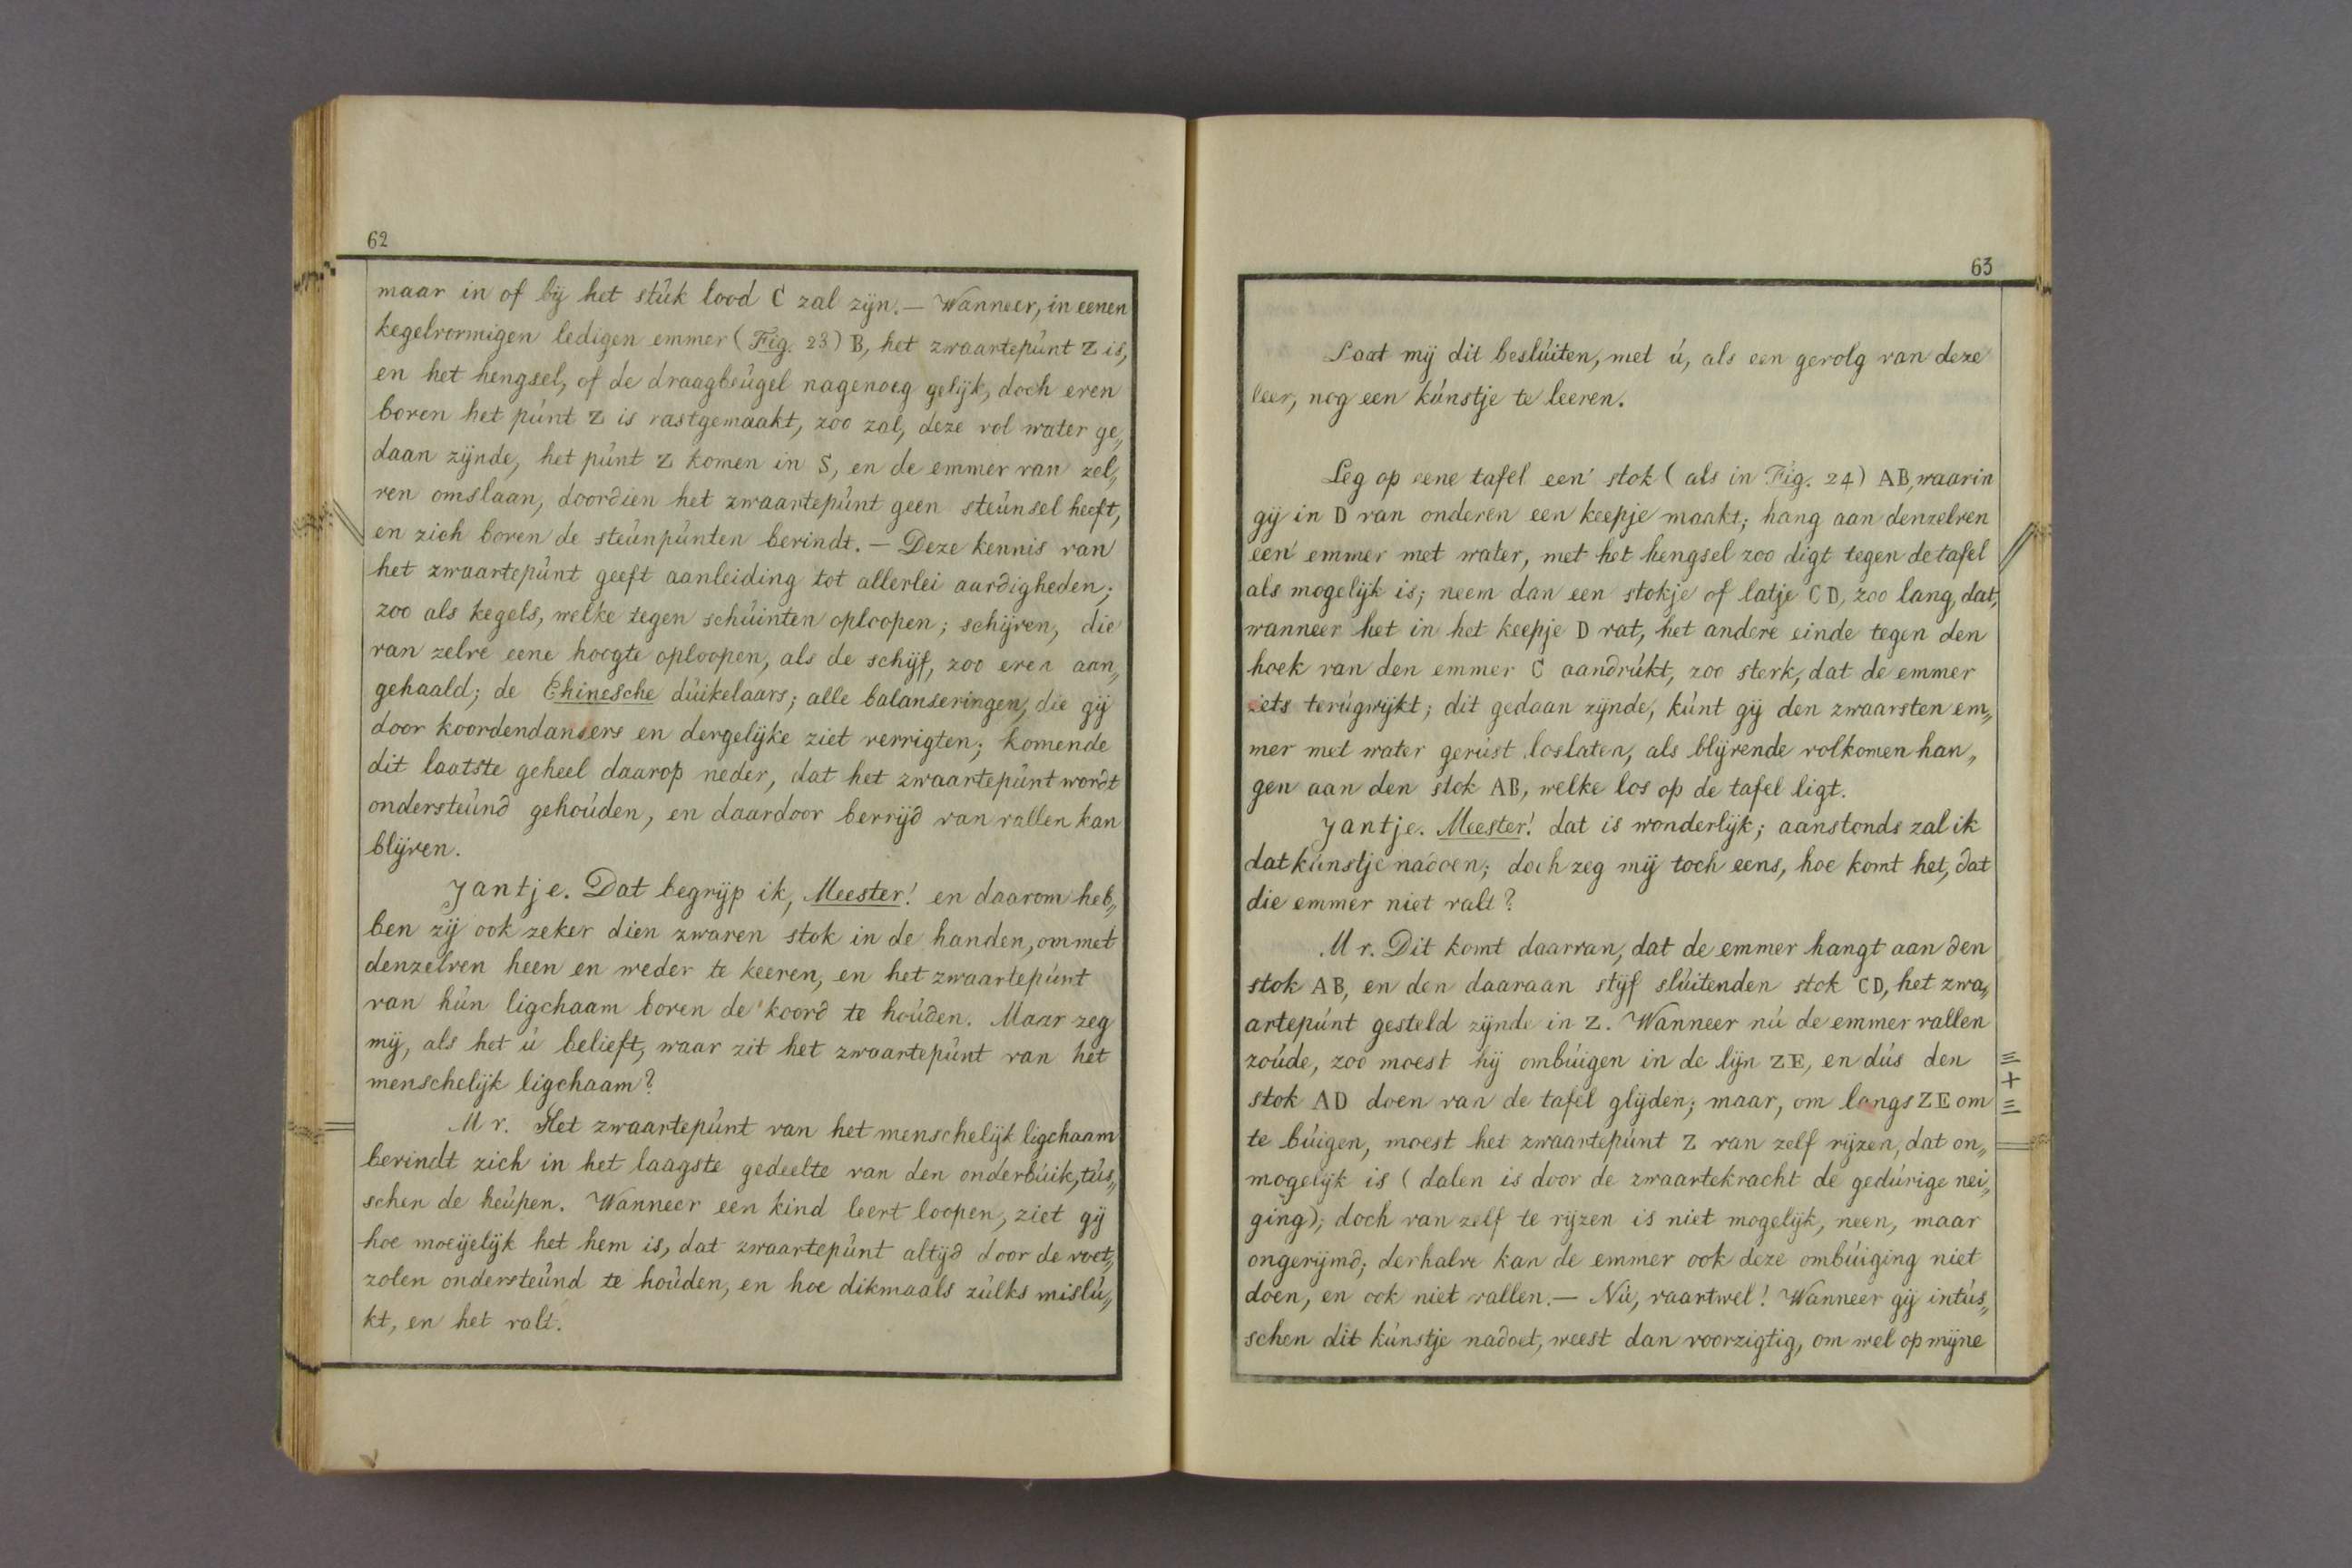 62
maar in of bij het stuk lood C zal zijn. — Wanneer, in eenen
kegelvormigen ledigen emmer (Fig. 23) B, het zwaartepunt Z is,
en het hengsel, of de draagbeugel nagenoeg gelijk, doch even
boven het punt Z is vastgemaakt, zoo zal, deze vol water ge„
daan zijnde, het punt Z komen in S, en de emmer van zel„
ven omslaan, doordien het zwaartepunt geen steunsel heeft,
en zich boven de steunpunten bevindt. — Deze kennis van
het zwaartepunt geeft aanleiding tot allerlei aardigheden;
zoo als kegels, welke tegen schuinten oploopen; schijven, die
van zelve eene hoogte oploopen, als de schijf, zoo even aan„
gehaald; de Chinesche duikelaars; alle balanseringen, die gij
door koordendansers en dergelijke ziet verrigten; komende
dit laatste geheel daarop neder, dat het zwaartepunt wordt
ondersteund gehouden, en daardoor bevrijd van vallen kan
blijven.
Jantje. Dat begrijp ik, Meester! en daarom heb„
ben zij ook zeker dien zwaren stok in de handen, om met
denzelven heen en weder te keeren, en het zwaartepunt
van hun ligchaam boven de koord te houden. Maar zeg
mij, als het u belieft, waar zit het zwaartepunt van het
menschelijk ligchaam?
Mr. Het zwaartepunt van het menschelijk ligchaam
bevindt zich in het laagste gedeelte van den onderbuik, tus„
schen de heupen. Wanneer een kind leert loopen, ziet gij
hoe moeijelijk het hem is, dat zwaartepunt altijd door de voet„
zolen ondersteund te houden, en hoe dikmaals zulks mislu„
kt, en het valt.
63
Laat mij dit besluiten, met u, als een gevolg van deze
leer, nog een kunstje te leeren.
Leg op eene tafel een' stok (als in Fig. 24) AB, waarin
gij in D van onderen een keepje maakt; hang aan denzelven
een' emmer met water, met het hengsel zoo digt tegen de tafel
als mogelijk is; neem dan een stokje of latje CD, zoo lang, dat,
wanneer het in het keepje D vat, het andere einde tegen den
hoek van den emmer C aandrukt, zoo sterk, dat de emmer
iets terugwijkt; dit gedaan zijnde, kunt gij den zwaarsten em„
mer met water gerust loslaten, als blijvende volkomen han„
gen aan den stok AB, welke los op de tafel ligt.
Jantje. Meester! dat is wonderlijk; aanstonds zal ik
dat kunstje nadoen; doch zeg mij toch eens, hoe komt het, dat
die emmer niet valt?
Mr. Dit komt daarvan, dat de emmer hangt aan den
stok AB, en den daaraan stijf sluitenden stok CD, het zwa„
artepunt gesteld zijnde in Z. Wanneer nu de emmer vallen
zoude, zoo moest hij ombuigen in de lijn ZE, en dus den
stok AD doen van de tafel glijden; maar, om langs ZE om
te buigen, moest het zwaartepunt Z van zelf rijzen, dat on„
mogelijk is (dalen is door de zwaartekracht de gedurige nei„
ging); doch van zelf te rijzen is niet mogelijk, neen, maar
ongerijmd; derhalve kan de emmer ook deze ombuiging niet
doen, en ook niet vallen. — Nu, vaartwel! Wanneer gij intus„
schen dit kunstje nadoet, weest dan voorzigtig, om wel op mijne